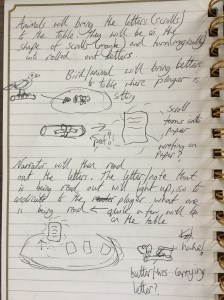 Animals will bring the letters (scrolls)
to the table. They will be in the
shape of scrolls (maybe) and turn
into rolled out letters
Bird/animal will bring letters
to table where player is
sitting
Scroll
turns into
Paper
writing on
Paper?
Narrator will then read
out the letters. The letter/note that
is being read out will light up, so to
indicate to the player what one
is being read
on the table
butterflies carrying
letter?